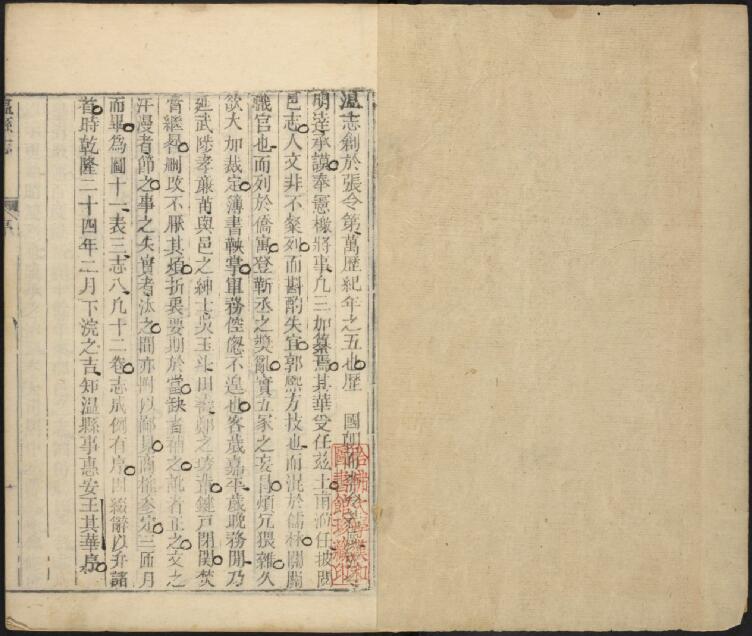 溫志創於張令第萬歷紀年之五也歷 國朝
明逹承謨奉憲檄將事凡三加纂焉其華受任茲土甫涖任披閱
邑志人文非不燦列而斟酌失宜郭熙方技也而混於儒林關關
職官也而列於僑寓登斬丞之獎亂實五冢之妄冐煩冗猥雜久
欲大加裁定簿書鞅掌軍務倥偬不遑也客歲嘉平歲晚務閒乃
延武陟孝廉苟與邑之紳士 玉斗田 鄭之 鍵戸閉關焚
膏繼晷刪攺不厭其煩折衷要期於當缺者補之訛者正之文之
汗漫者節之事之失實者汰之間亦附以鄙見商 叅定三匝月
而畢為圖十一表三志八凡十二卷志成例有序因綴辭以弁諸
首時乾隆二十四年二月下浣之吉知溫縣事惠安王其華序
溫縣志
序
一
哈佛大學漢和
圖書館珍藏印